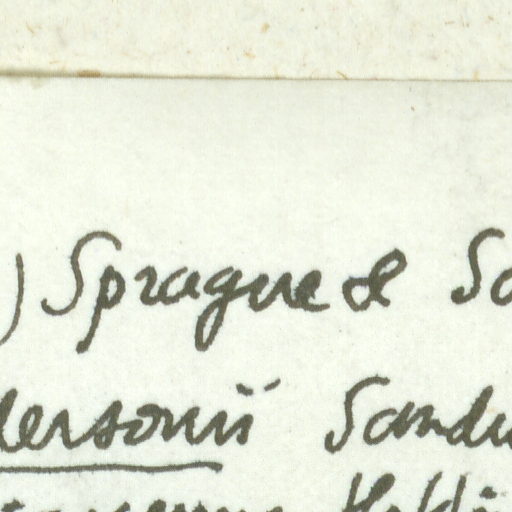 ) Sprague & Sa
dersonii Sandw